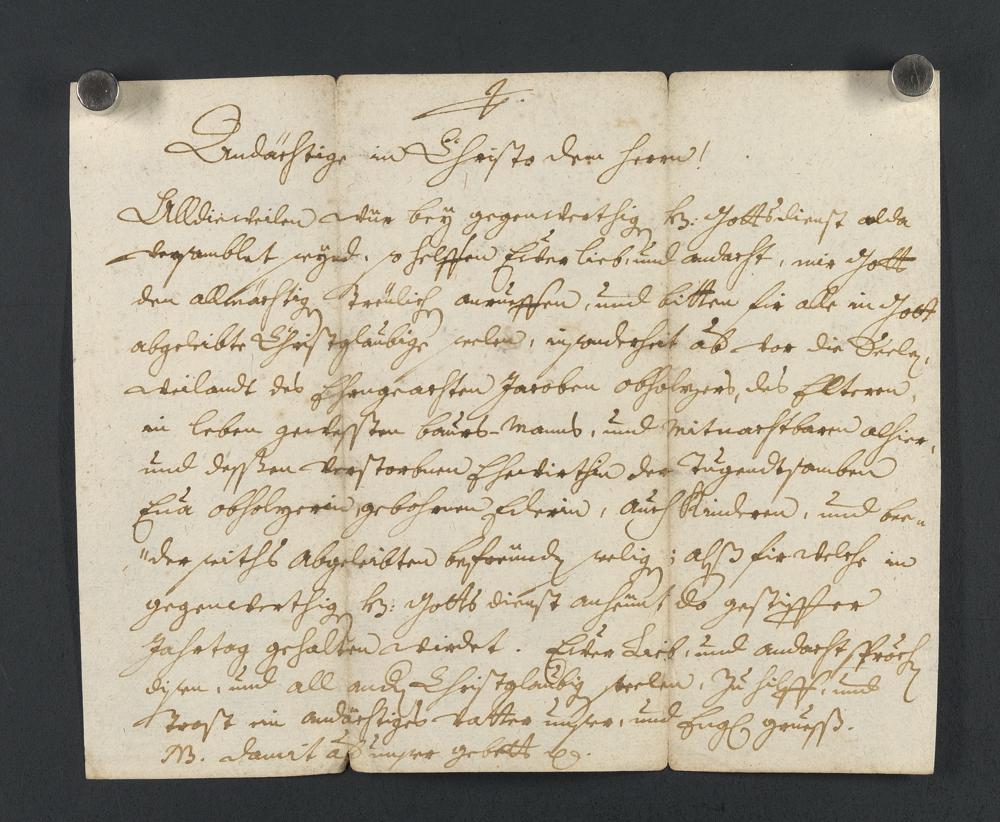 Andächtige in Christo dem Herrn!
Alldieweilen wür bey gegenwerthig h: Gottsdienst alda
versamblet seynd, so helffen Eüer lieb, und andacht, mir Gott
den allmächtig threülich anrueffen, und bitten für alle in Gott
abgeleibte Christglaubige seelen, insonderheit ab vor die Seelen,
weilandt des Ehrngeachten Jacoben obholzers, des Elteren,
in leben gewessten baurs-Manns, und Mitnachtbaren alhier,
und dessen verstorbnen Ehewirthin der Tugendtsamben
Eua obholzerin, gebohrnen Ederin, auch Kinderen, und bee-
"der seiths abgeleibten befreündt seelig; alß für welche in
gegenwerthig h: Gotts dienst anheünt do gestiffter
Jahrtag gehalten wirdet. Eüer Lieb, und andacht spröch
disen, und all and Christglaubig seelen, zu hilff, und
Trost ein andächtiges vatter unser, und Engl gruess.
NB. damit ab unser gebett &c.